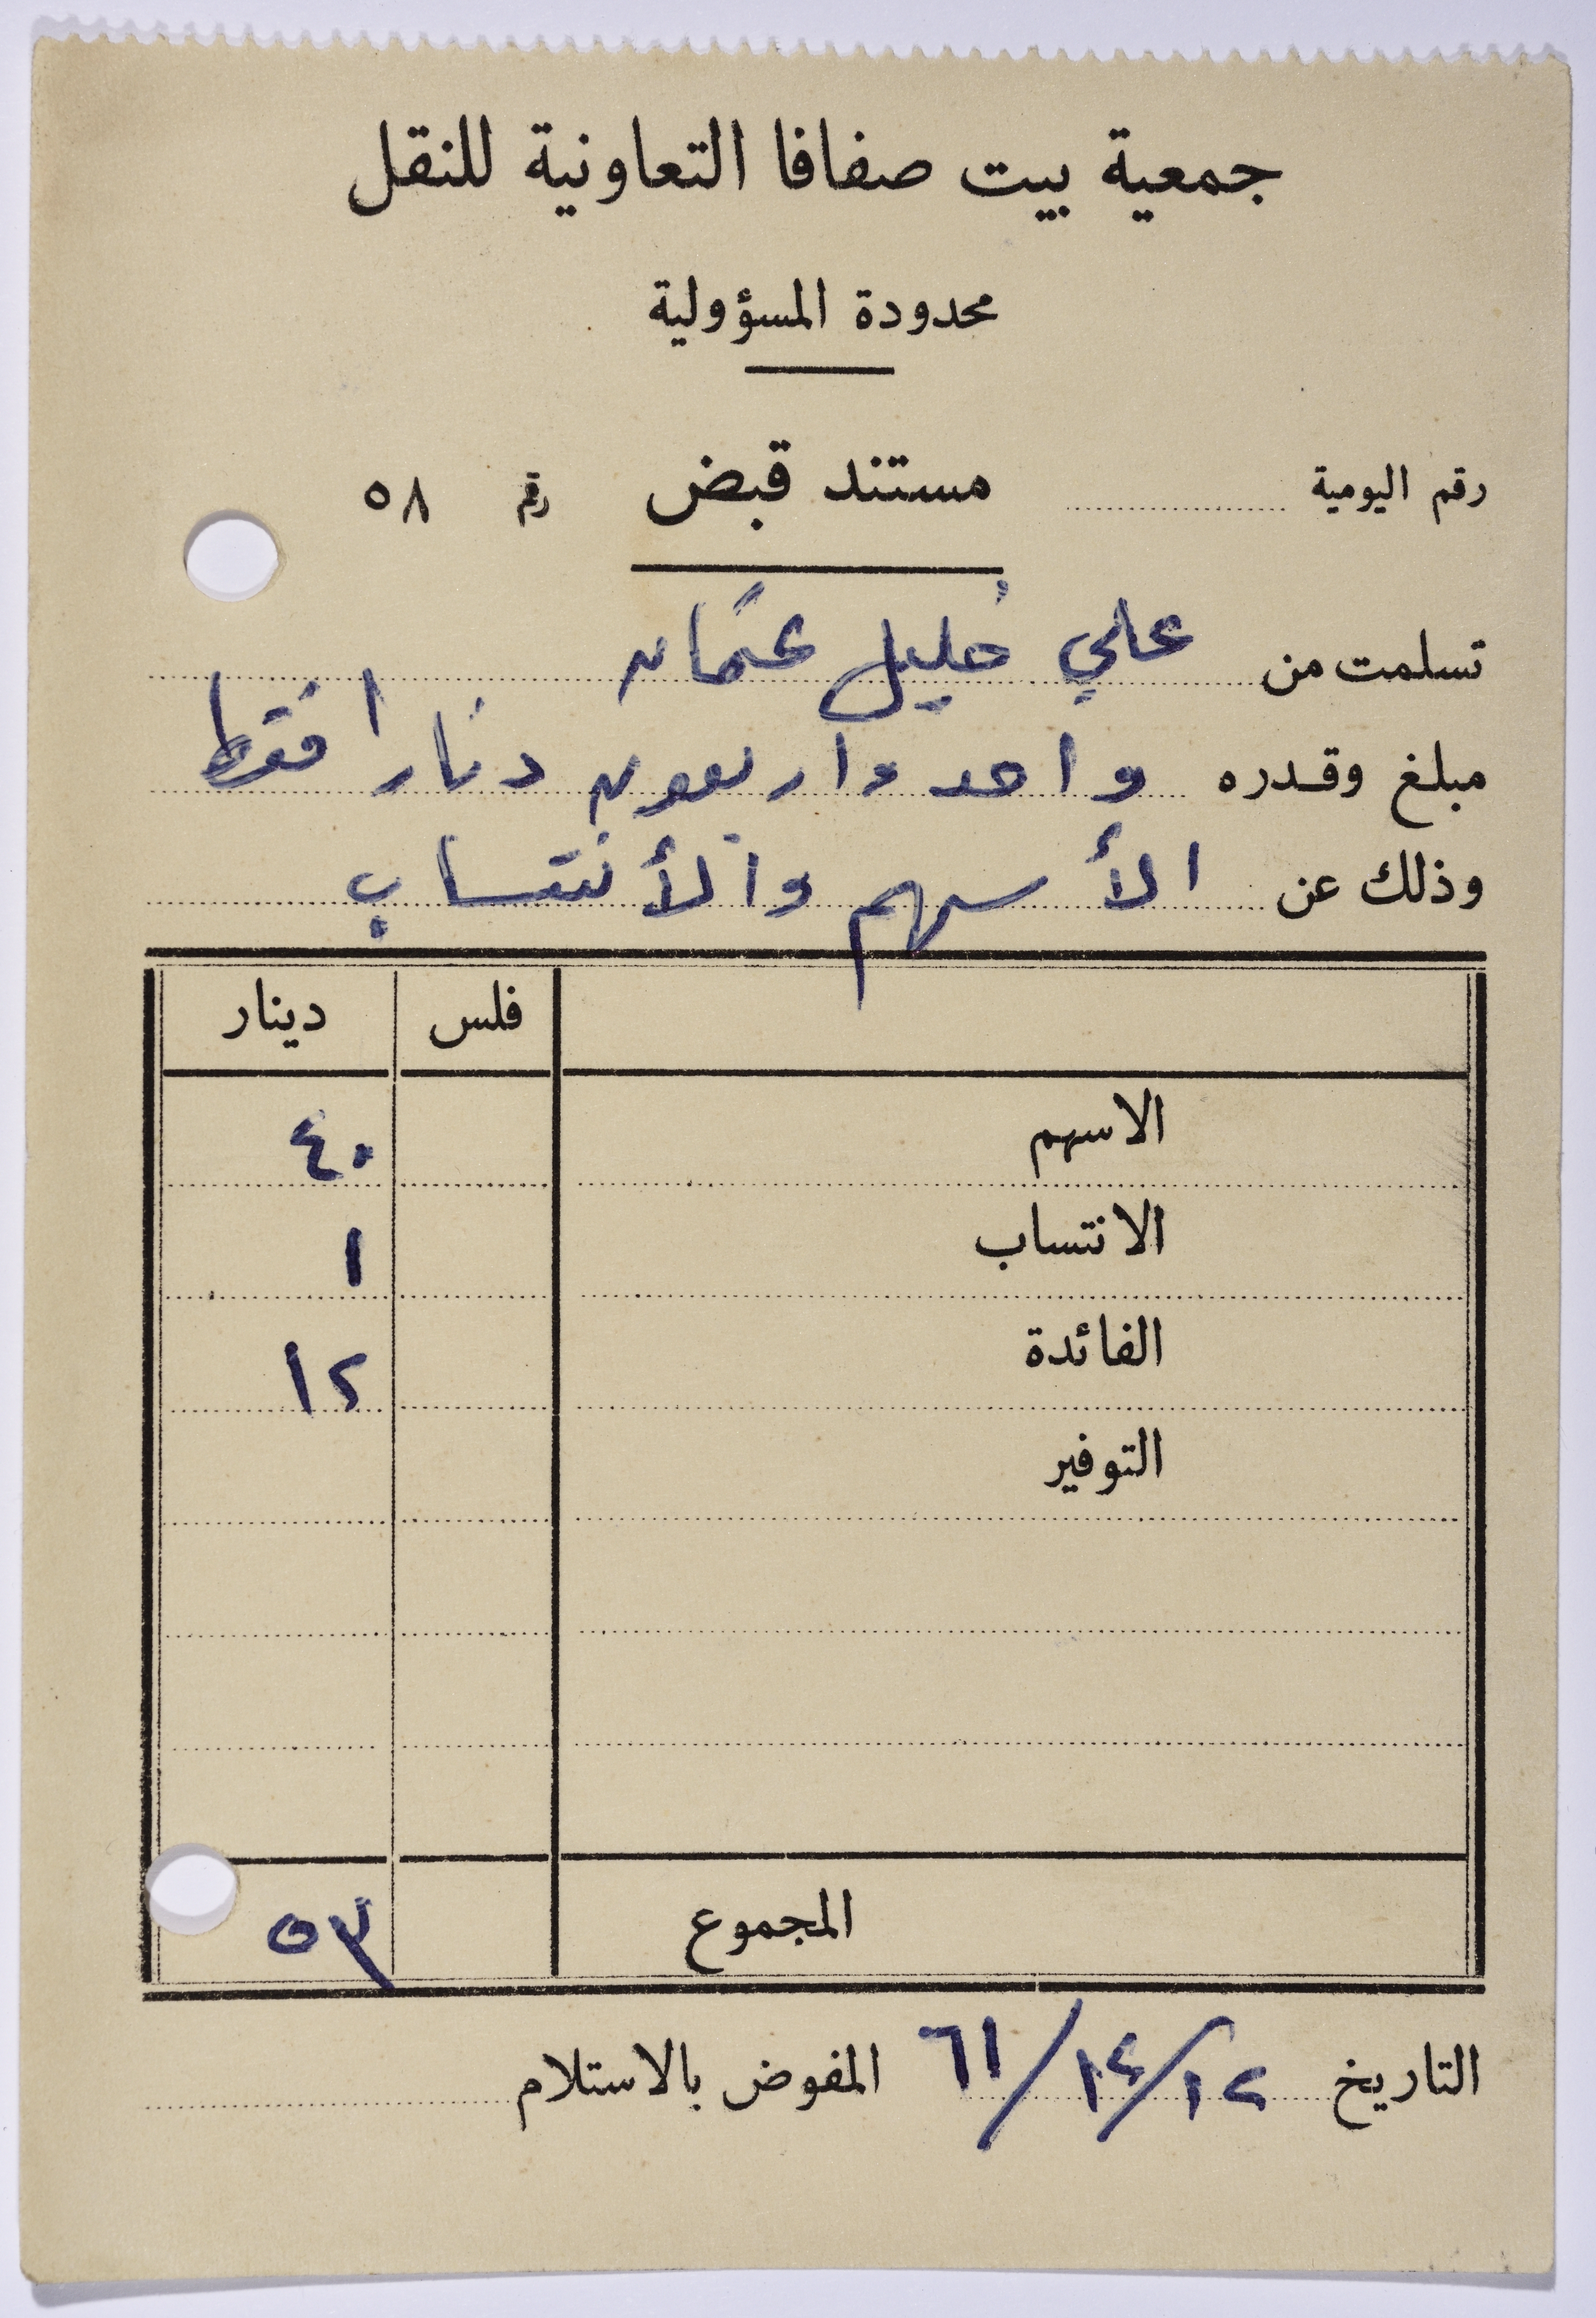 جمعية بيت صفافا التعاونية للنقل
محدودة المسؤولية
رقم اليومية مستند قبض رقم ٥٨
تسلمت من علي خليل عثمان
مبلغ وقدره واحد واربعون دنارا فقط
وذلك عن الأسهم والأنتساب
فلس دينار
الاسهم ٤٠
الانتساب ١
الفائدة ١٢
التوفير
المجموع ٥٣
التاريخ ١٢/١٢/٦١ المفوض بالاستلام